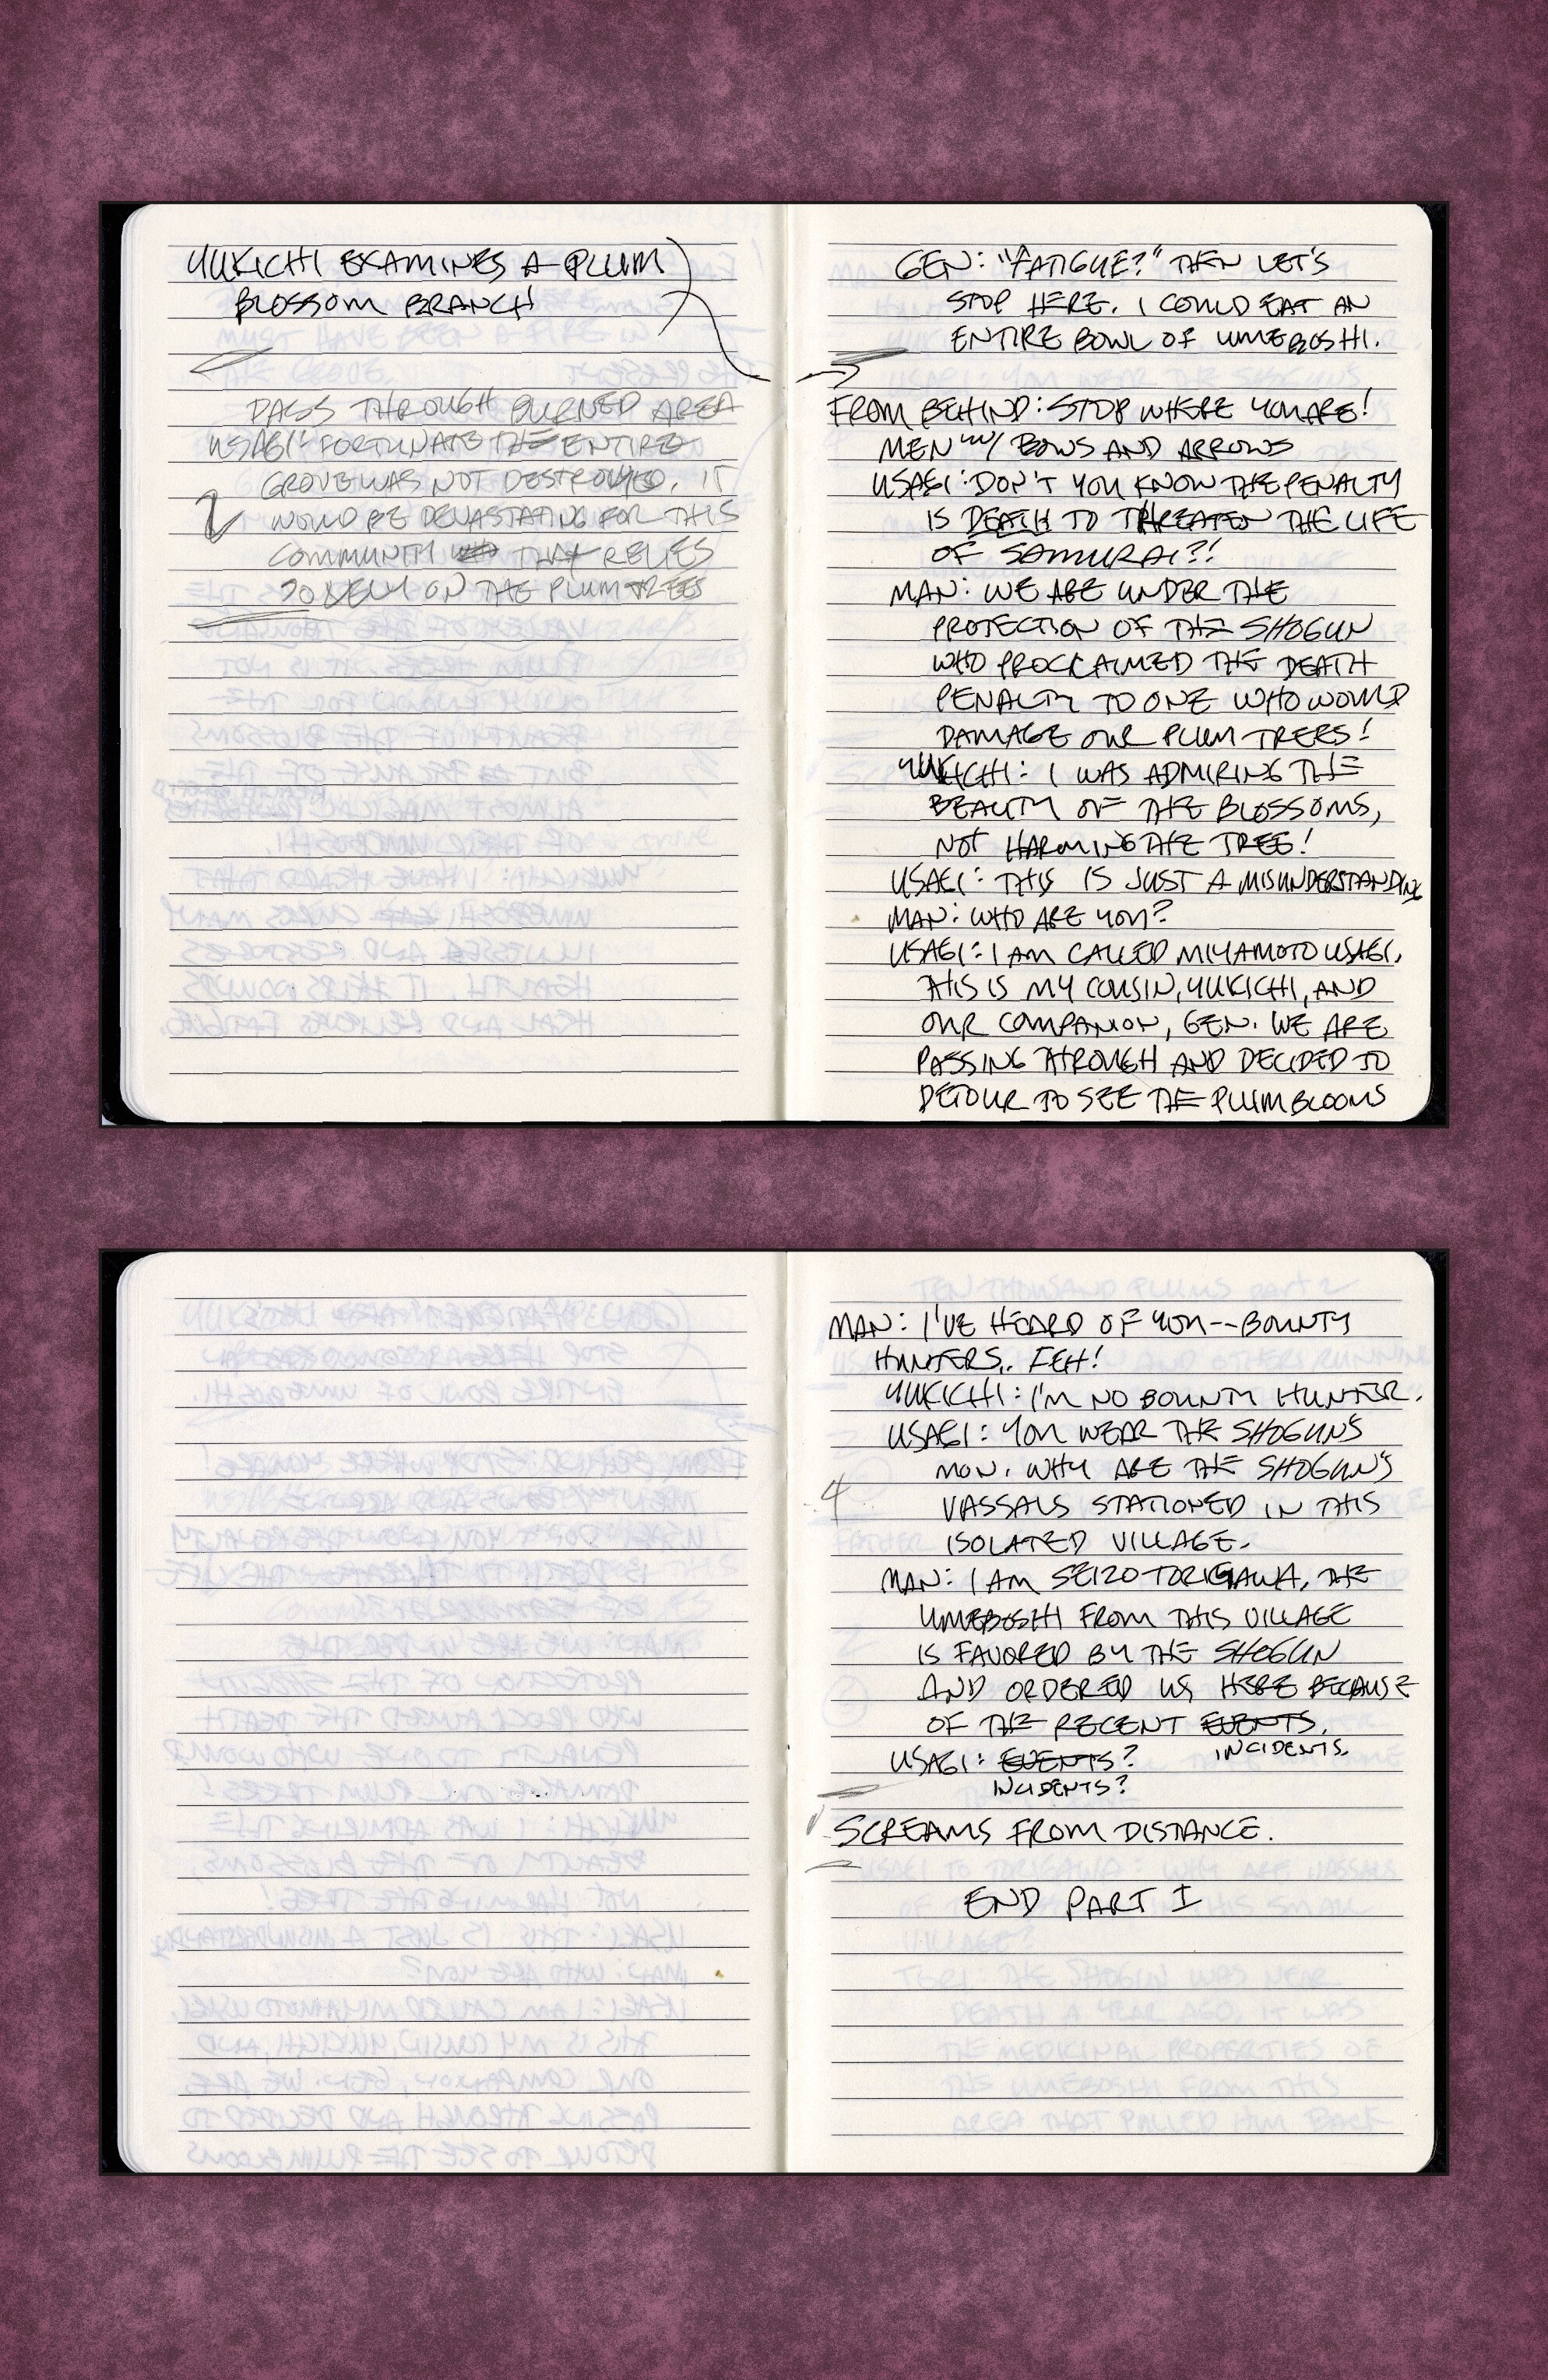 YUKICHI EXAMINES A PLUM
BLOSSOM BRANCH
PASS THROUGH BURNED AREA
USAGI: FORTUNATE THE ENTIRE
GROVE WAS NOT DESTROYED. IT
2
WOULD BE DEVASTATING FOR THIS
COMMUNITY THAT RELIES
SOLELY ON THE PLUM TREES
GEN: "FATIGUE?" THEN LET'S
STOP HERE. I COULD EAT AN
ENTIRE BOWL OF UMEBOSHI.
FROM BEHIND: STOP WHERE YOU ARE!
MEN W/ BOWS AND ARROWS
USAGI: DON'T YOU KNOW THE PENALTY
IS DEATH TO THREATEN THE LIFE
OF SAMURAI?!
MAN: WE ARE UNDER THE
PROTECTION OF THE SHOGUN
WHO PROCLAIMED THE DEATH
PENALTY TO ONE WHO WOULD
DAMAGE OUR PLUM TREES!
YUKICHI: I WAS ADMIRING THE
BEAUTY OF THE BLOSSOMS,
NOT HARMING THE TREE!
USAGI: THIS IS JUST A MISUNDERSTANDING
MAN: WHO ARE YOU?
USAGI: I AM CALLED MIYAMOTO USAGI.
THIS IS MY COUSIN, YUKICHI, AND
OUR COMPANION, GEN. WE ARE
PASSING THROUGH AND DECIDED TO
DETOUR TO SEE THE PLUM BLOOMS
MAN: I'VE HEARD OF YOU--BOUNTY
HUNTERS.. FEH!
YUKICHI: I'M NO BOUNTY HUNTER.
USAGI: YOU WEAR THE SHOGUN'S
MON. WHY ARE THE SHOGUN'S
4
VASSALS STATIONED IN THIS
ISOLATED VILLAGE.
MAN: I AM SEIZO TORIGAWA, THE
UMEBOSHI FROM THIS VILLAGE
IS FAVORED BY THE SHOGUN
AND ORDERED US HERE BECAUSE
OF THE RECENT EVENTS.
INCIDENTS.
USAGI: EVENTS?
INCIDENTS?
SCREAMS FROM DISTANCE.
END PART I